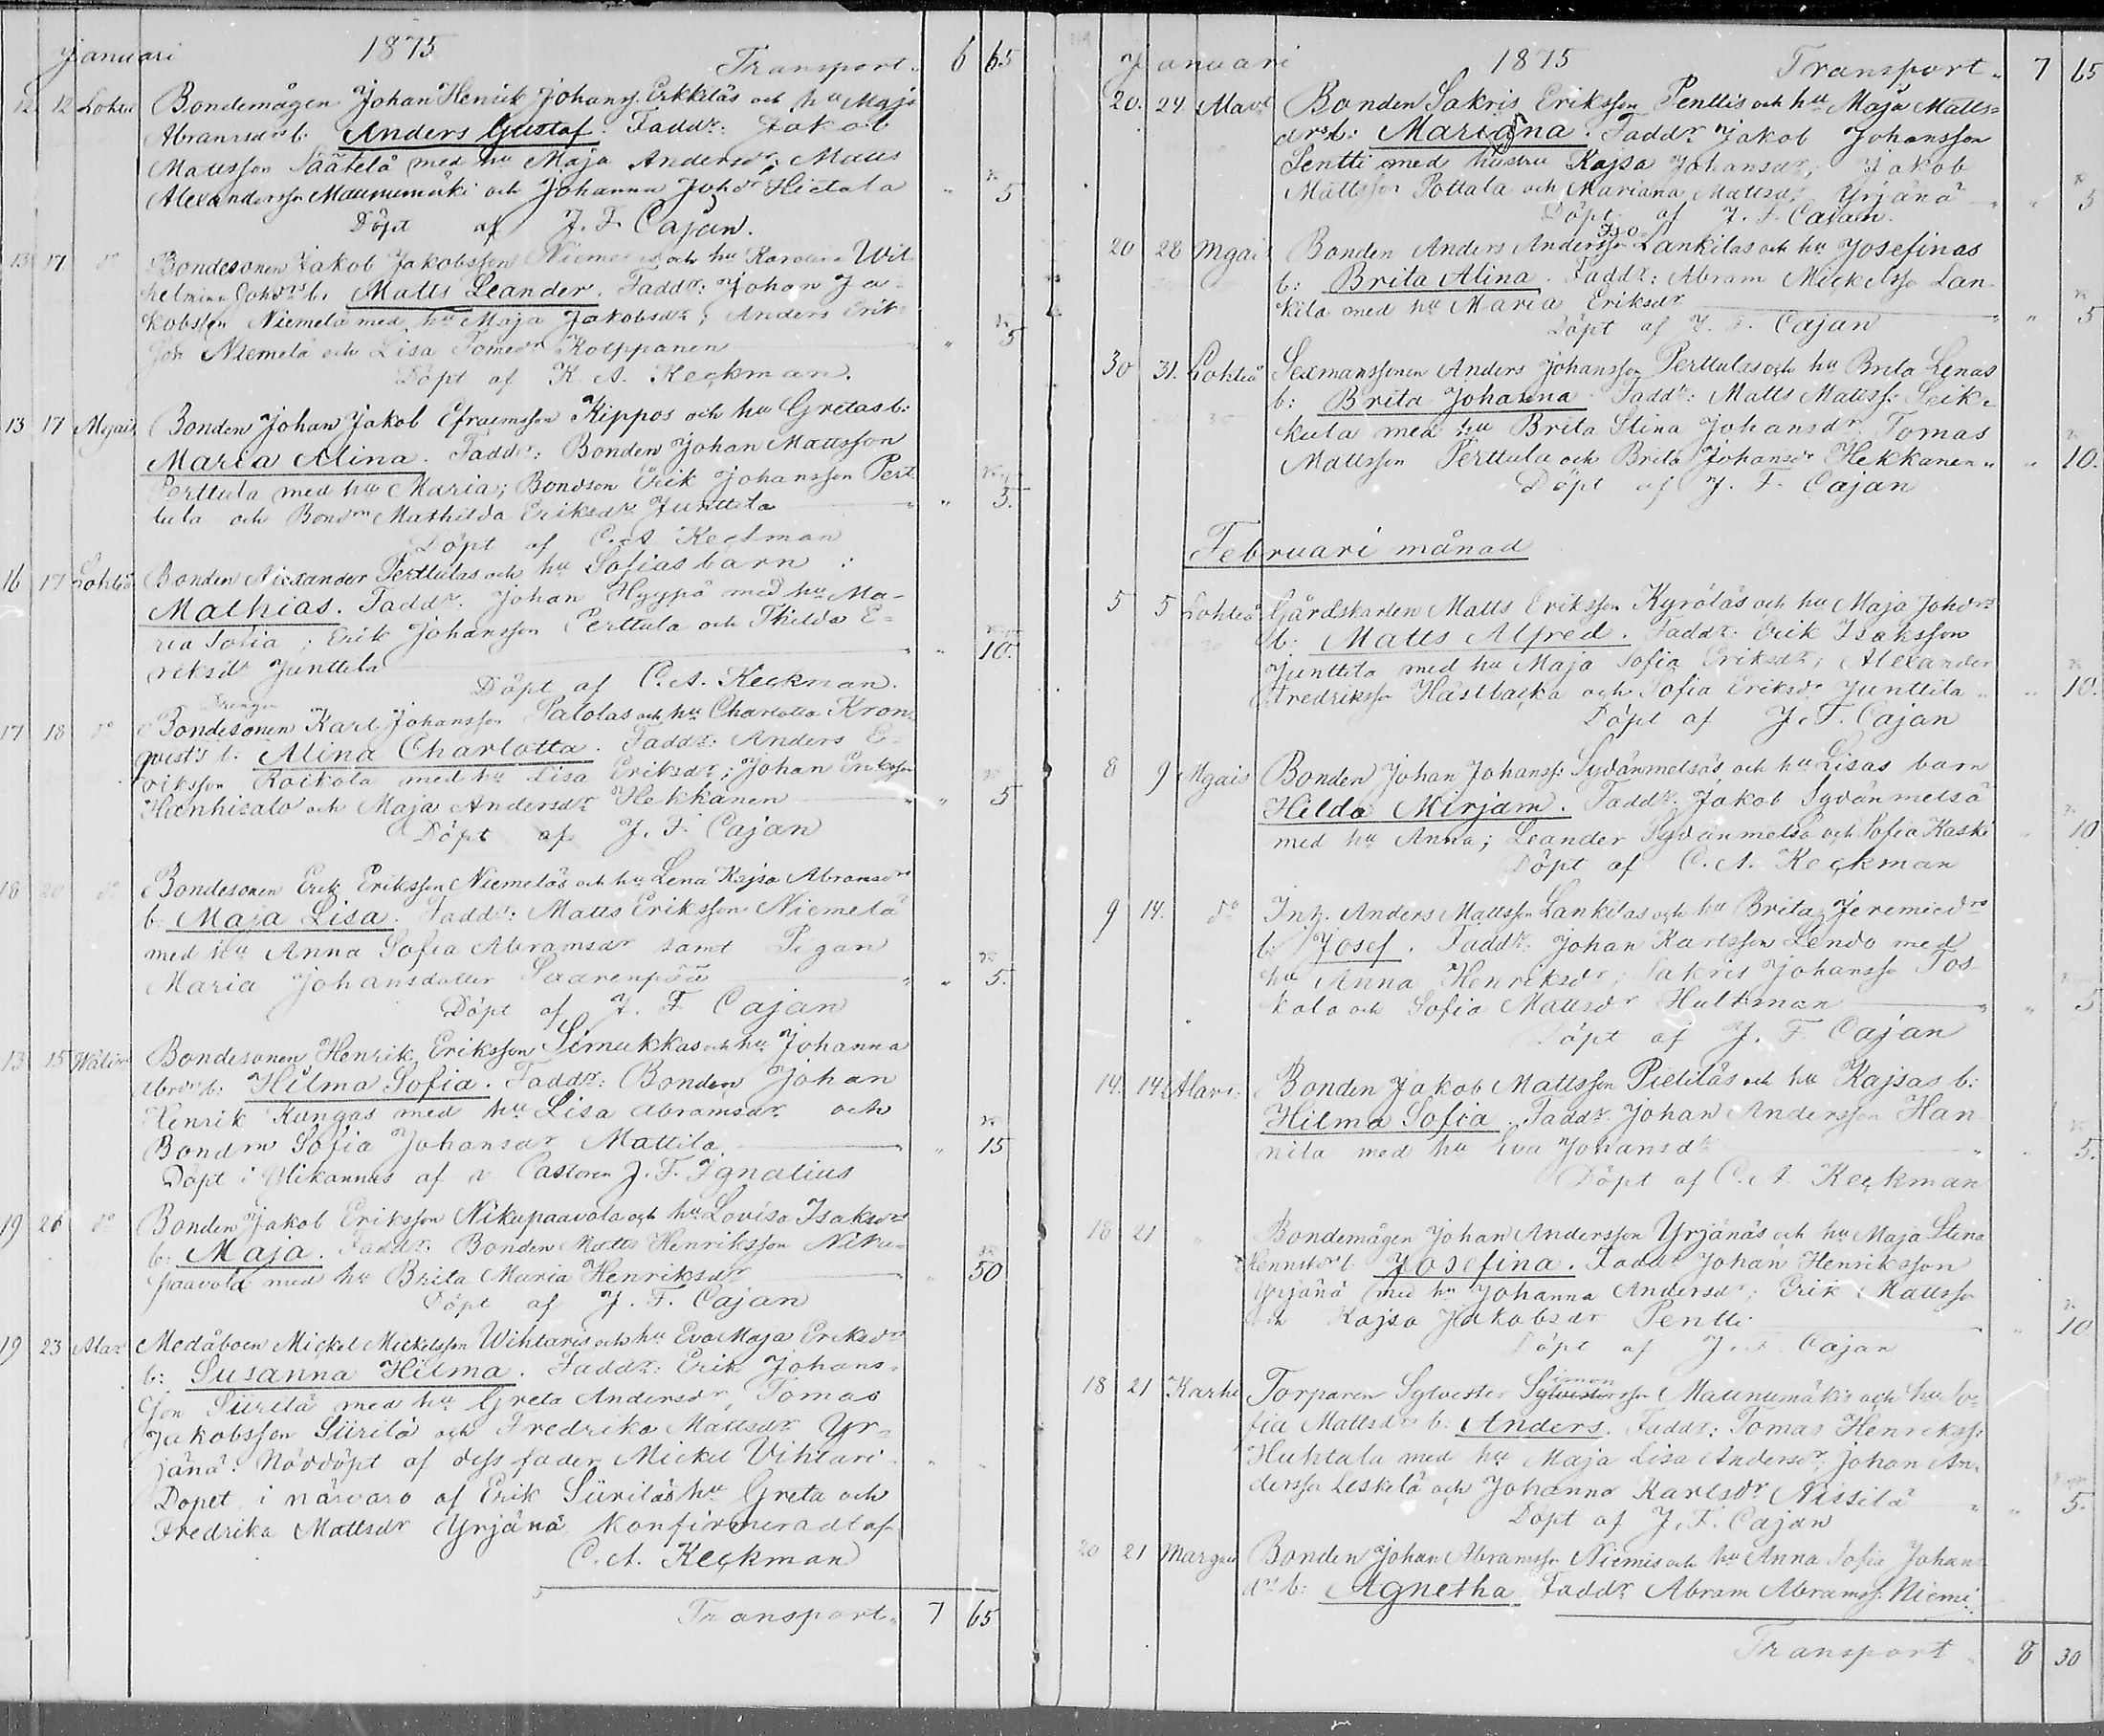 Januari 1875 Transport. 6 65
12 12 Lohteå Bondemågen Johan Henrik Johanss. Erkkiläs och hu Maja
Abramsdrs b. Anders Gustaf. Faddr: Jakob
Mattsson Säätelä med hu Maja Andersdr; Matts
Alexandersson Maunumäki och Johanna Johdr Hietala " 5
Döpt af J. F. Cajan.
13 17 do Bondesonen Jakob Jakobsson Niemeläs och hu Karolina Wil-
helmina Johdrs b. Matts Leander. Faddr: Johan Ja-
kobsson Niemelä med hu Maja Jakobsdr; Anders Erik-
son Niemelä och Lisa Tomedr Kolppanen " 5
Döpt af K. A. Keckman.
13 17 Mgais Bonden Johan Jakob Efraimsson Kippos och hu Gretas b:
Maria Alina. Faddr: Bonden Johan Mattsson
Perttula med hu Maria; Bondson Erik Johansson Pert-
tula och Bondm Mathilda Eriksdr Junttila " 5.
Döpt af C. A. Keckman
16 17 Lohteå Bonden Alexander Perttulas och hu Sofias barn :
Mathias. Faddr. Johan Hyypä med hu Ma-
ria Sofia; Erik Johansson Perttula och Thilda E-
riksdr Junttila " 10.
Döpt af C. A. Keckman.
Drengen
17 18 do Bondesonen Karl Johansson Salolas och hu Charlotta Kron-
qvist's b. Alina Charlotta. Faddr: Anders E-
riksson Roikola med hu Lisa Eriksdr; Johan Eriksson
Hienhisalo och Maja Andersdr Hekkanen " 5
Döpt af J. F. Cajan
18 20 do Bondesonen Erik Eriksson Niemeläs och hu Lena Kajsa Abramsdrs
b. Maja Lisa. Faddr: Matts Eriksson Niemelä
med hu Anna Sofia Abramsdr samt Pigan
Maria Johansdotter Saarenpää " 5.
Döpt af J. F. Cajan
13 15 Wälivi Bondesonen Henrik Eriksson Simukkas och hu Johanna
Abrdrs b. Hilma Sofia. Faddr: Bonden Johan
Henrik Kungas med hu Lisa Abramsdr och
Bondm Sofia Johansdr Mattila. " 15
Döpt i Ulikannus af v. Pastoren J. F. Ignatius
19 26 do Bonden Jakob Eriksson Nikupaavola och hu Lovisa Isaksdrs
b: Maja. Faddr. Bonden Matts Henriksson Niku-
paavola med hu Brita Maria Henriksdr " 50
Döpt af J. F. Cajan
19 23 Alav Medåboen Mickel Mickelsson Wihtaris och hu Eva Maja Eriksdrs
b: Susanna Hilma. Faddr: Erik Johans-
son Siirilä med hu Greta Andersdr, Tomas
Jakobsson Siirilä och Fredrika Mattsdr Yr-
jänä. Nöddöpt af dess fader Mickel Vihtari " "
Dopet i närvaro af Erik Siiriläs hu Greta och
Fredrika Mattsdr Yrjänä Konfirmeradt af
C. A. Keckman
Transport. 7 65
Januari 1875 Transport. 7 65
20. 24. Alavi Bonden Sakris Eriksson Penttis och hu Maja Matts-
drs b: Mariana. Faddr Jakob Johansson
Pentti med hustru Kajsa Johansdr; Jakob
Mattsson Pottala och Mariana Mattsdr Yrjänä " 5
Döpt af J. F. Cajan.
Iso-
20 28 Mgais Bonden Anders Andersson Lankilas och hu Josefinas
b: Brita Alina. Faddr: Abram Mickelsso Lan-
kila med hu Maria Eriksdr " 5
Döpt af J. F. Cajan
30 31. Lohteå Sexmanssonen Anders Johansson Perttulas och hu Brita Lenas
b: Brita Johanna. Faddr: Matts Matss: Seik-
kula med hu Brita Stina Johansdr Tomas
Mattsson Perttula och Brita Johansdr Hekkanen " " 10.
Döpt af J. F. Cajan
Februari månad
5 5 Lohteå Gårdskarlen Matts Eriksson Kyröläs och hu Maja Johdrs
b: Matts Alfred. Faddr. Erik Isaksson
Junttila med hu Maja Sofia Eriksdr; Alexander
Fredriksso Hästbacka och Sofia Eriksdr Junttila " " 10.
Döpt af J. F. Cajan
8 9 Mgais Bonden Johan Johanss: Sydänmetsäs och hu Lisas barn
Hilda Mirjam. Faddr. Jakob Sydänmetsä
med hu Anna; Leander Sydänmetsä och Sofia Kaski " 10
Döpt af C. A. Keckman
9 14. do Inh. Anders Mattsson Lankilas och hu Brita Jeremiedrs
b: Josef. Faddr. Johan Karlsson Lendo med
hu Anna Henriksdr; Sakris Johansso Tos-
kala och Sofia Mattsdr Hultman " 5
Döpt af J. F. Cajan
14. 14 Alavi: Bonden Jakob Mattsson Pietiläs och hu Kajsas b:
Hilma Sofia. Faddr. Johan Andersson Han-
nila med hu Eva Johansdr " 5.
Döpt af C. A. Keckman
18 21 " Bondemågen Johan Andersson Yrjänäs och hu Maja Stina
Henriksdrs b. Josefina. Faddr Johan Henriksson
Yrjänä med hu Johanna Andersdr; Erik Mattsso
och Kajsa Jakobsdr Pentti " 10
Döpt af J. F. Cajan
Simon
18 21 Karhi Torparen Sylvester Sylvestersson Maunumäkis och hu So-
fia Mattsdrs b: Anders. Faddr: Tomas Henrikss:
Huhtala med hu Maja Lisa Andersdr, Johan An-
dersso Leskelä och Johanna Karlsdr Nissilä " " 5.
Döpt af J. F. Cajan
20 21 Margais Bonden Johan Abramsso Niemis och hu Anna Sofia Johan
drs b: Agnetha Faddr Abram Abramss: Niemi
Transport 8 30